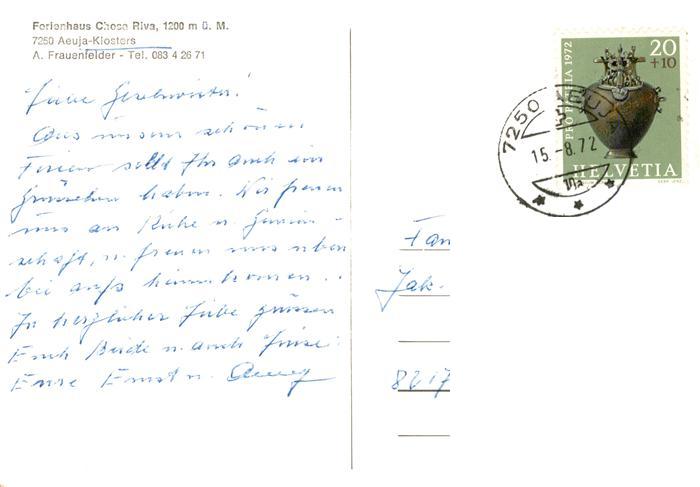 Ferienhaus Chesa Riva, 1200 m ü. M.
7250 Aeuja-Klosters
A. Frauenfelder - Tel. 083 4 26 71
Liebe Geschwister!
Aus unsern schönen
Ferien sollt Ihr auch ein
Grüsschen haben. Wir freuen
uns an Ruhe u. Gemein-
schaft, u. freuen uns eben
bei aufs heimkommen..
In herzlicher Liebe grüssen
Euch Beide u. auch
Eure Ernst u.
PRO PATRIA 1972
20
+10
HELVETIA
7250
15.-8.72
Fam
Jak.
8217